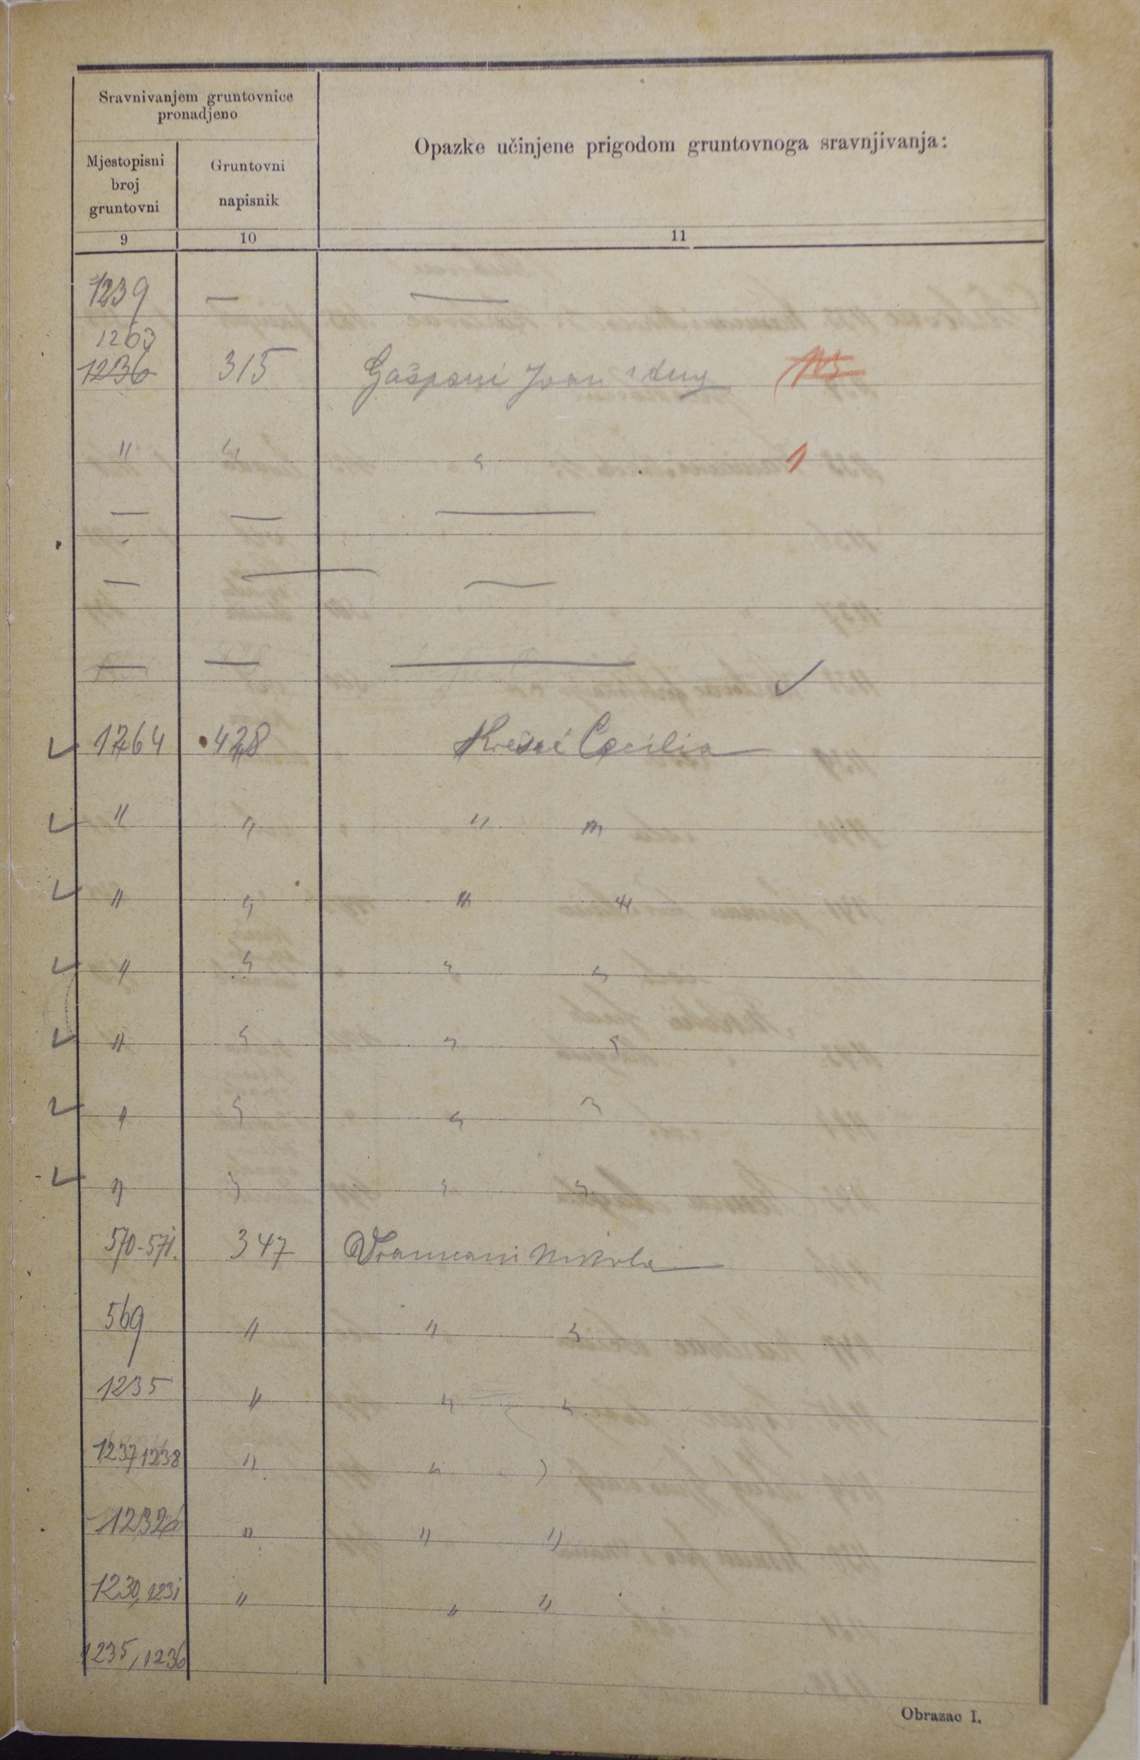 Sravnivanjem gruntovnice
pronadjeno
Opazke učinjene prigodom gruntovnoga sravnjivanja:
Mjestopisni
broj
gruntovni
Gruntovni
napisnik
9 10 11
1239 — —
1263
1236 315 Ivan
" " "
— — —
— — —
— — —
1264 428 Cecilia
" " " "
" " " "
" " " "
" " " "
" " " "
" " " "
570-571. 347 Nikola
569 " " "
1235 " " "
1237 1238 " " "
" " "
1230, 1231 " " "
1235, 1236
Obrazac I.